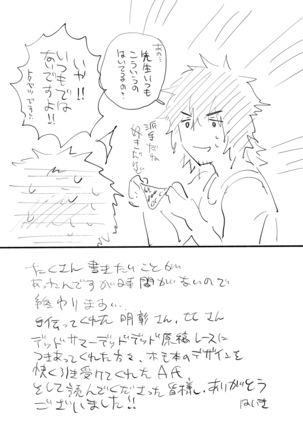 あの…
先生いつも
こういうの
はいてるの?
いや!!
いつもでは
ないですよ!!
トクベツです!!
派手だね
好きだけど
たくさん書きたいことが
あったんですが時間がないので
終わります…
手伝ってくれた明彰さん、ヒヒさん
デッドサマーデッドデッド原稿レースに
つきあってくれた方々、ホモ本のデザインを
快く引き受けてくれたA氏
そして読んでくださった皆様、ありがとう
ございました!!